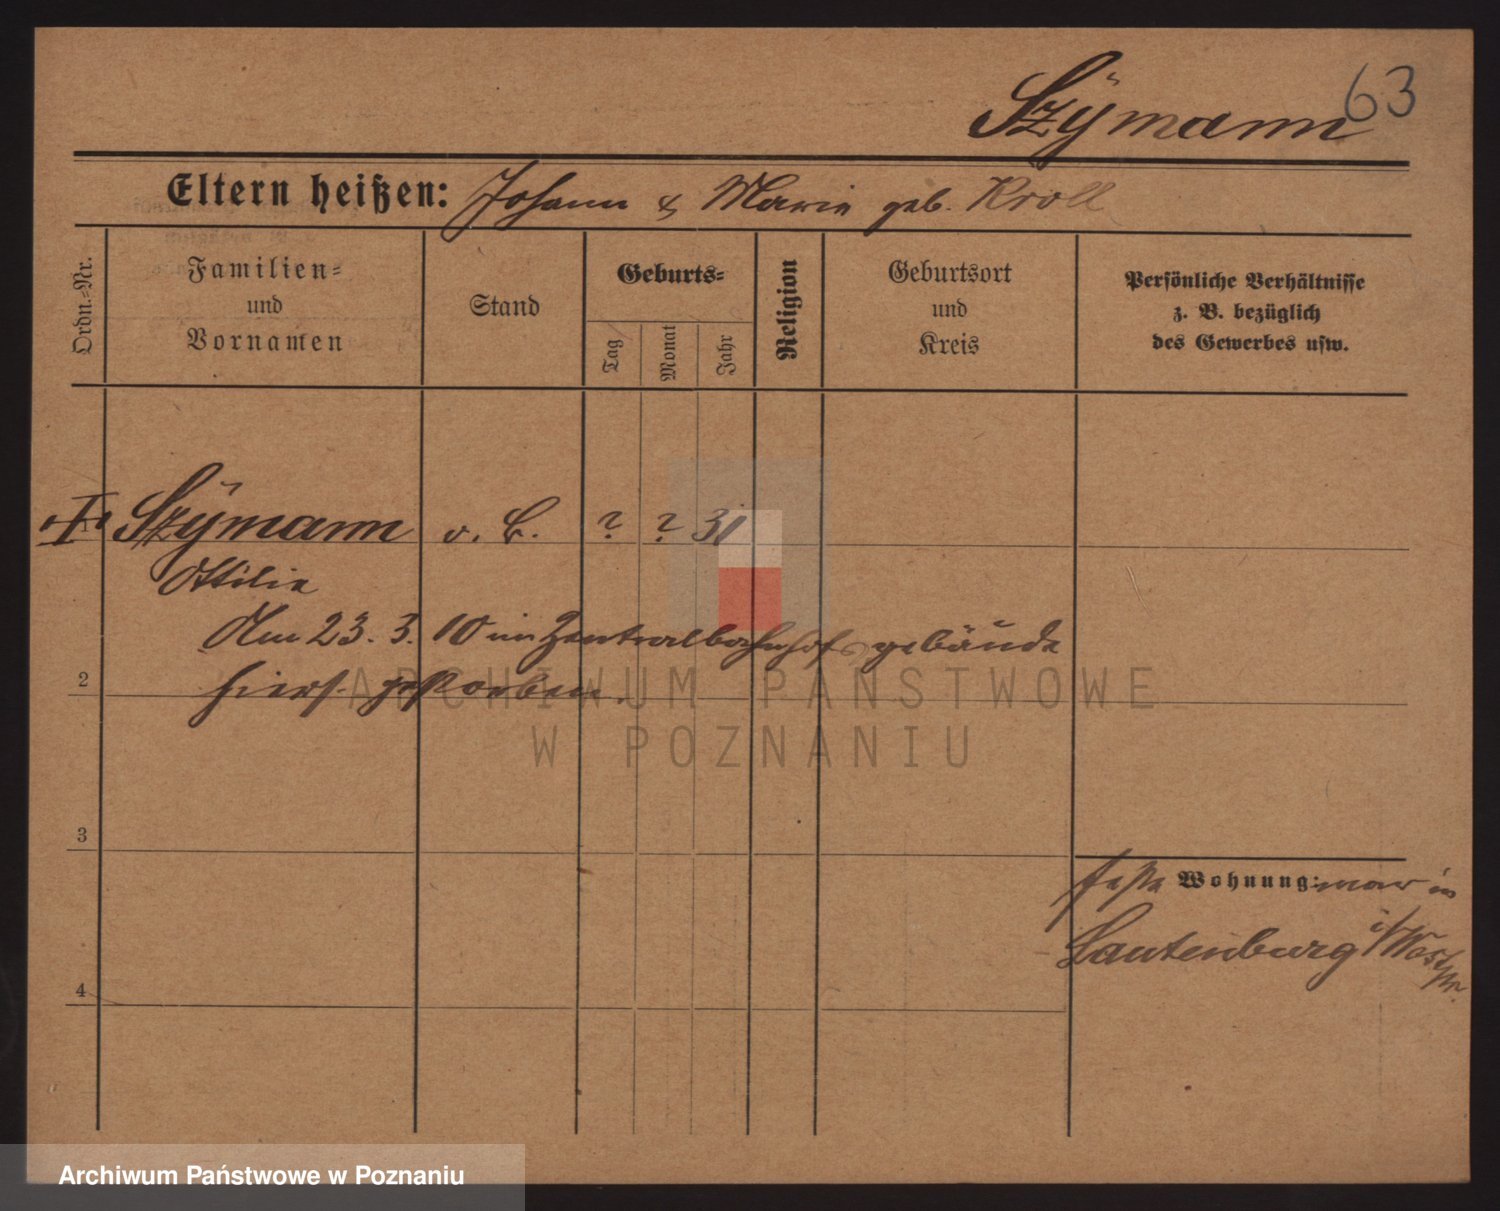 63
Szÿmann
Eltern heißen: Johann & Marie geb. Kroll
Ordn.=Nr.
Familien=
und
Vornamen
Stand
Geburts=
Tag
Monat
Jahr
Religion
Geburtsort
und
Kreis
Persönliche Verhältnisse
z. B. bezüglich
des Gewerbes usw.
1 Szÿmann o. B. ? ? 31
Ottilie
Am 23. 3. 10 im Zentralbahnhofsgebäude
2
hiers. gestorben.
ARCHIWUM PAŃSTWOWE
W POZNANIU
3
feste Wohnung: war in
Lautenburg i/Westpr.
4
Archiwum Państwowe w Poznaniu